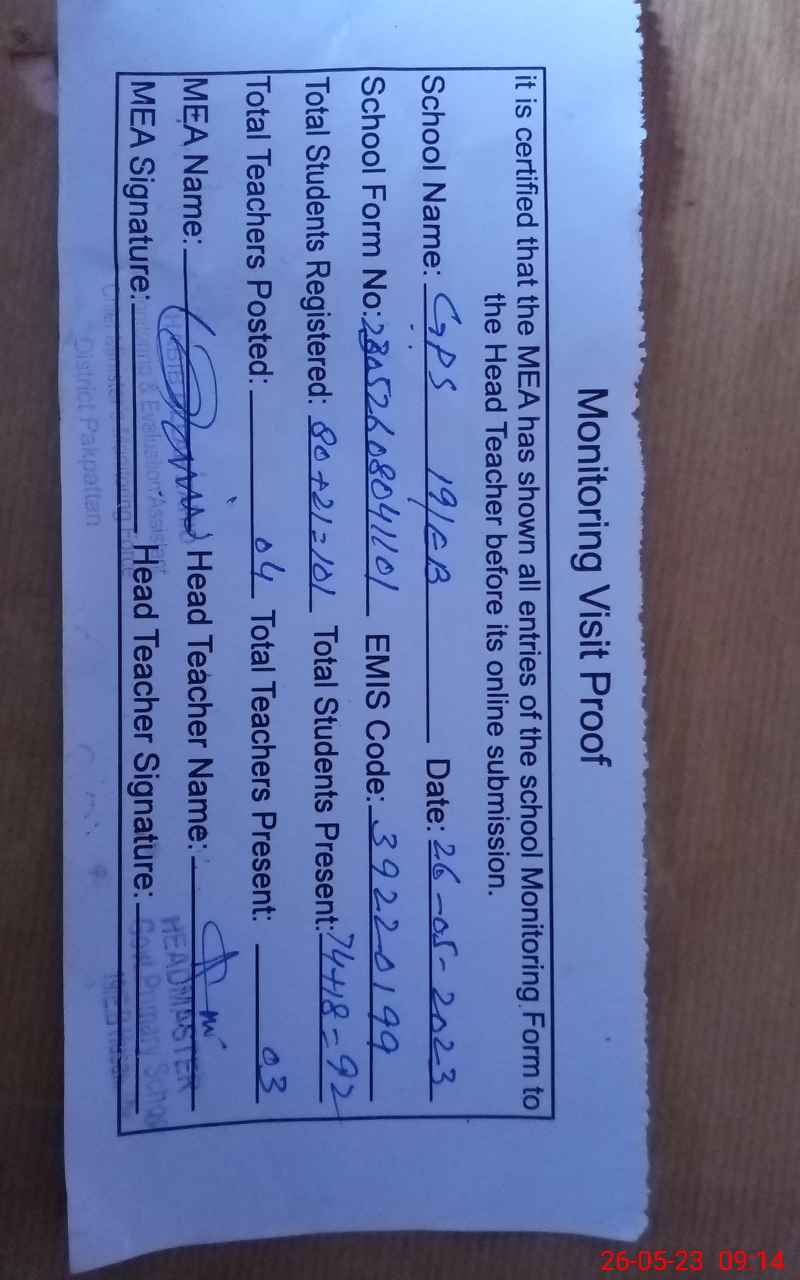 Monitoring Visit Proof
it is certified that the MEA has shown all entries of the school Monitoring Form to
the Head Teacher before its online submission.
School Name: GPS 19/EB Date: 26-05-2023
School Form No: EMIS Code: 39220199
Total Students Registered: 80+21=101 Total Students Present: 74+18=92
Total Teachers Posted: 04 Total Teachers Present: 03
MEA Name: Head Teacher Name:
MEA Signature: Head Teacher Signature:
Monitoring & Evaluation Assistant
Chief Minister's Monitoring Force
District Pakpattan
HEADMASTER
Govt Primary School
26-05-23 09:14